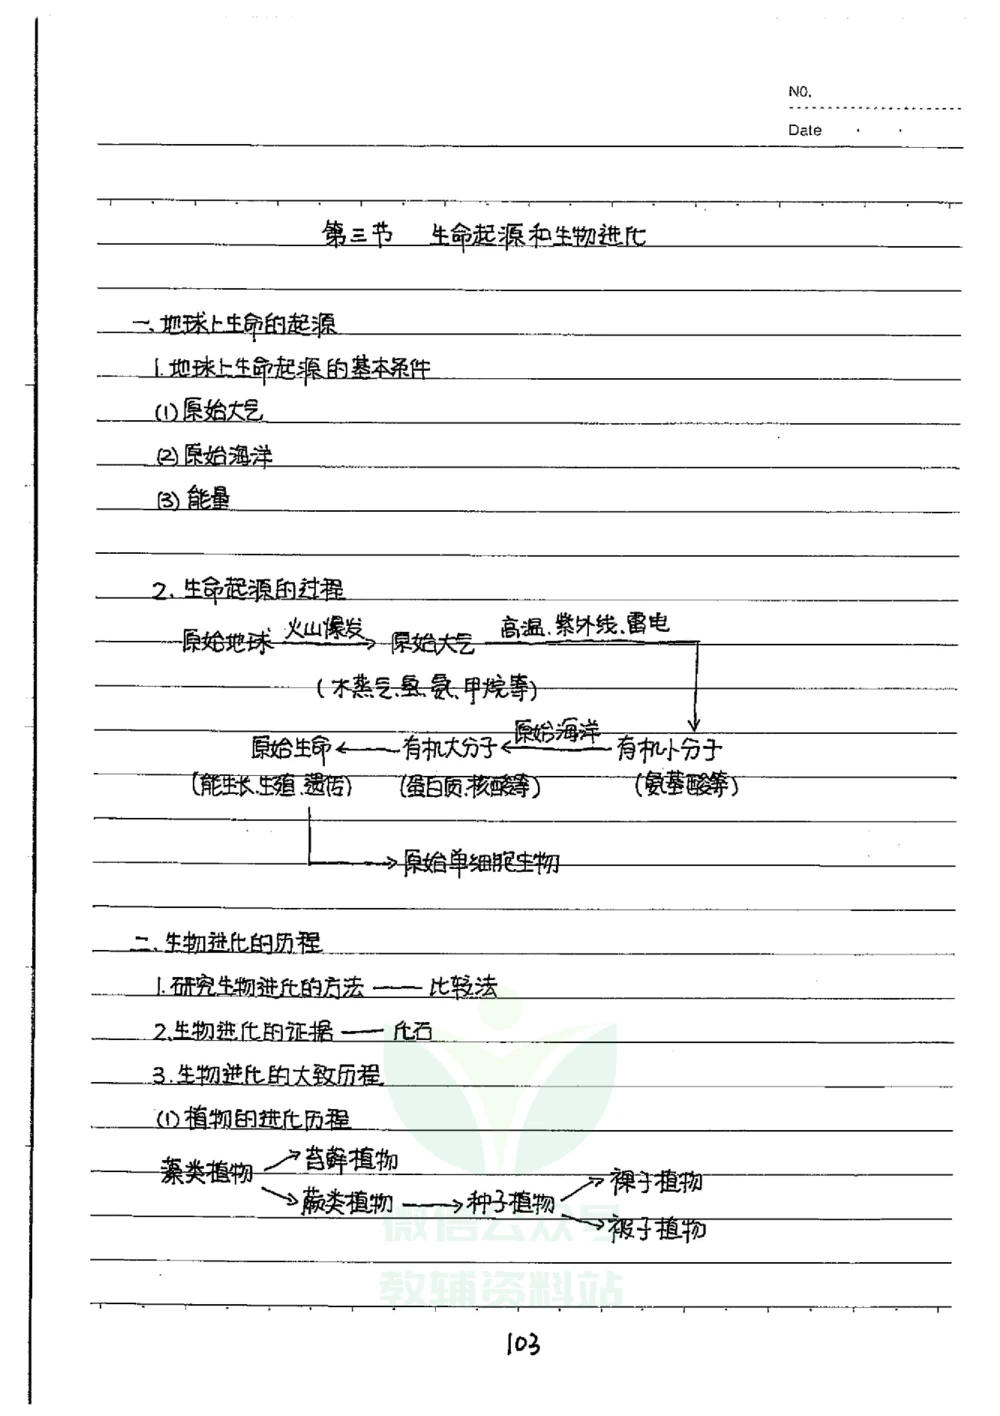 NO.
Date
第三节 生命起源和生物进化
一、地球上生命的起源
1.地球上生命起源的基本条件
(1)原始大气
(2)原始海洋
(3)能量
2、生命起源的过程
原始地球 火山爆发 原始大气 高温、紫外线、雷电
(水蒸气、氢、氨、甲烷等)
原始生命 有机大分子 原始海洋 有机小分子
(能生长、生殖、遗传) (蛋白质、核酸等) (氨基酸等)
原始单细胞生物
二、生物进化的历程
1.研究生物进化的方法——比较法
2、生物进化的证据——化石
3.生物进化的大致历程
(1)植物的进化历程
藻类植物 苔藓植物
蕨类植物 种子植物 裸子植物
被子植物
微信公众号
教辅资料站
103